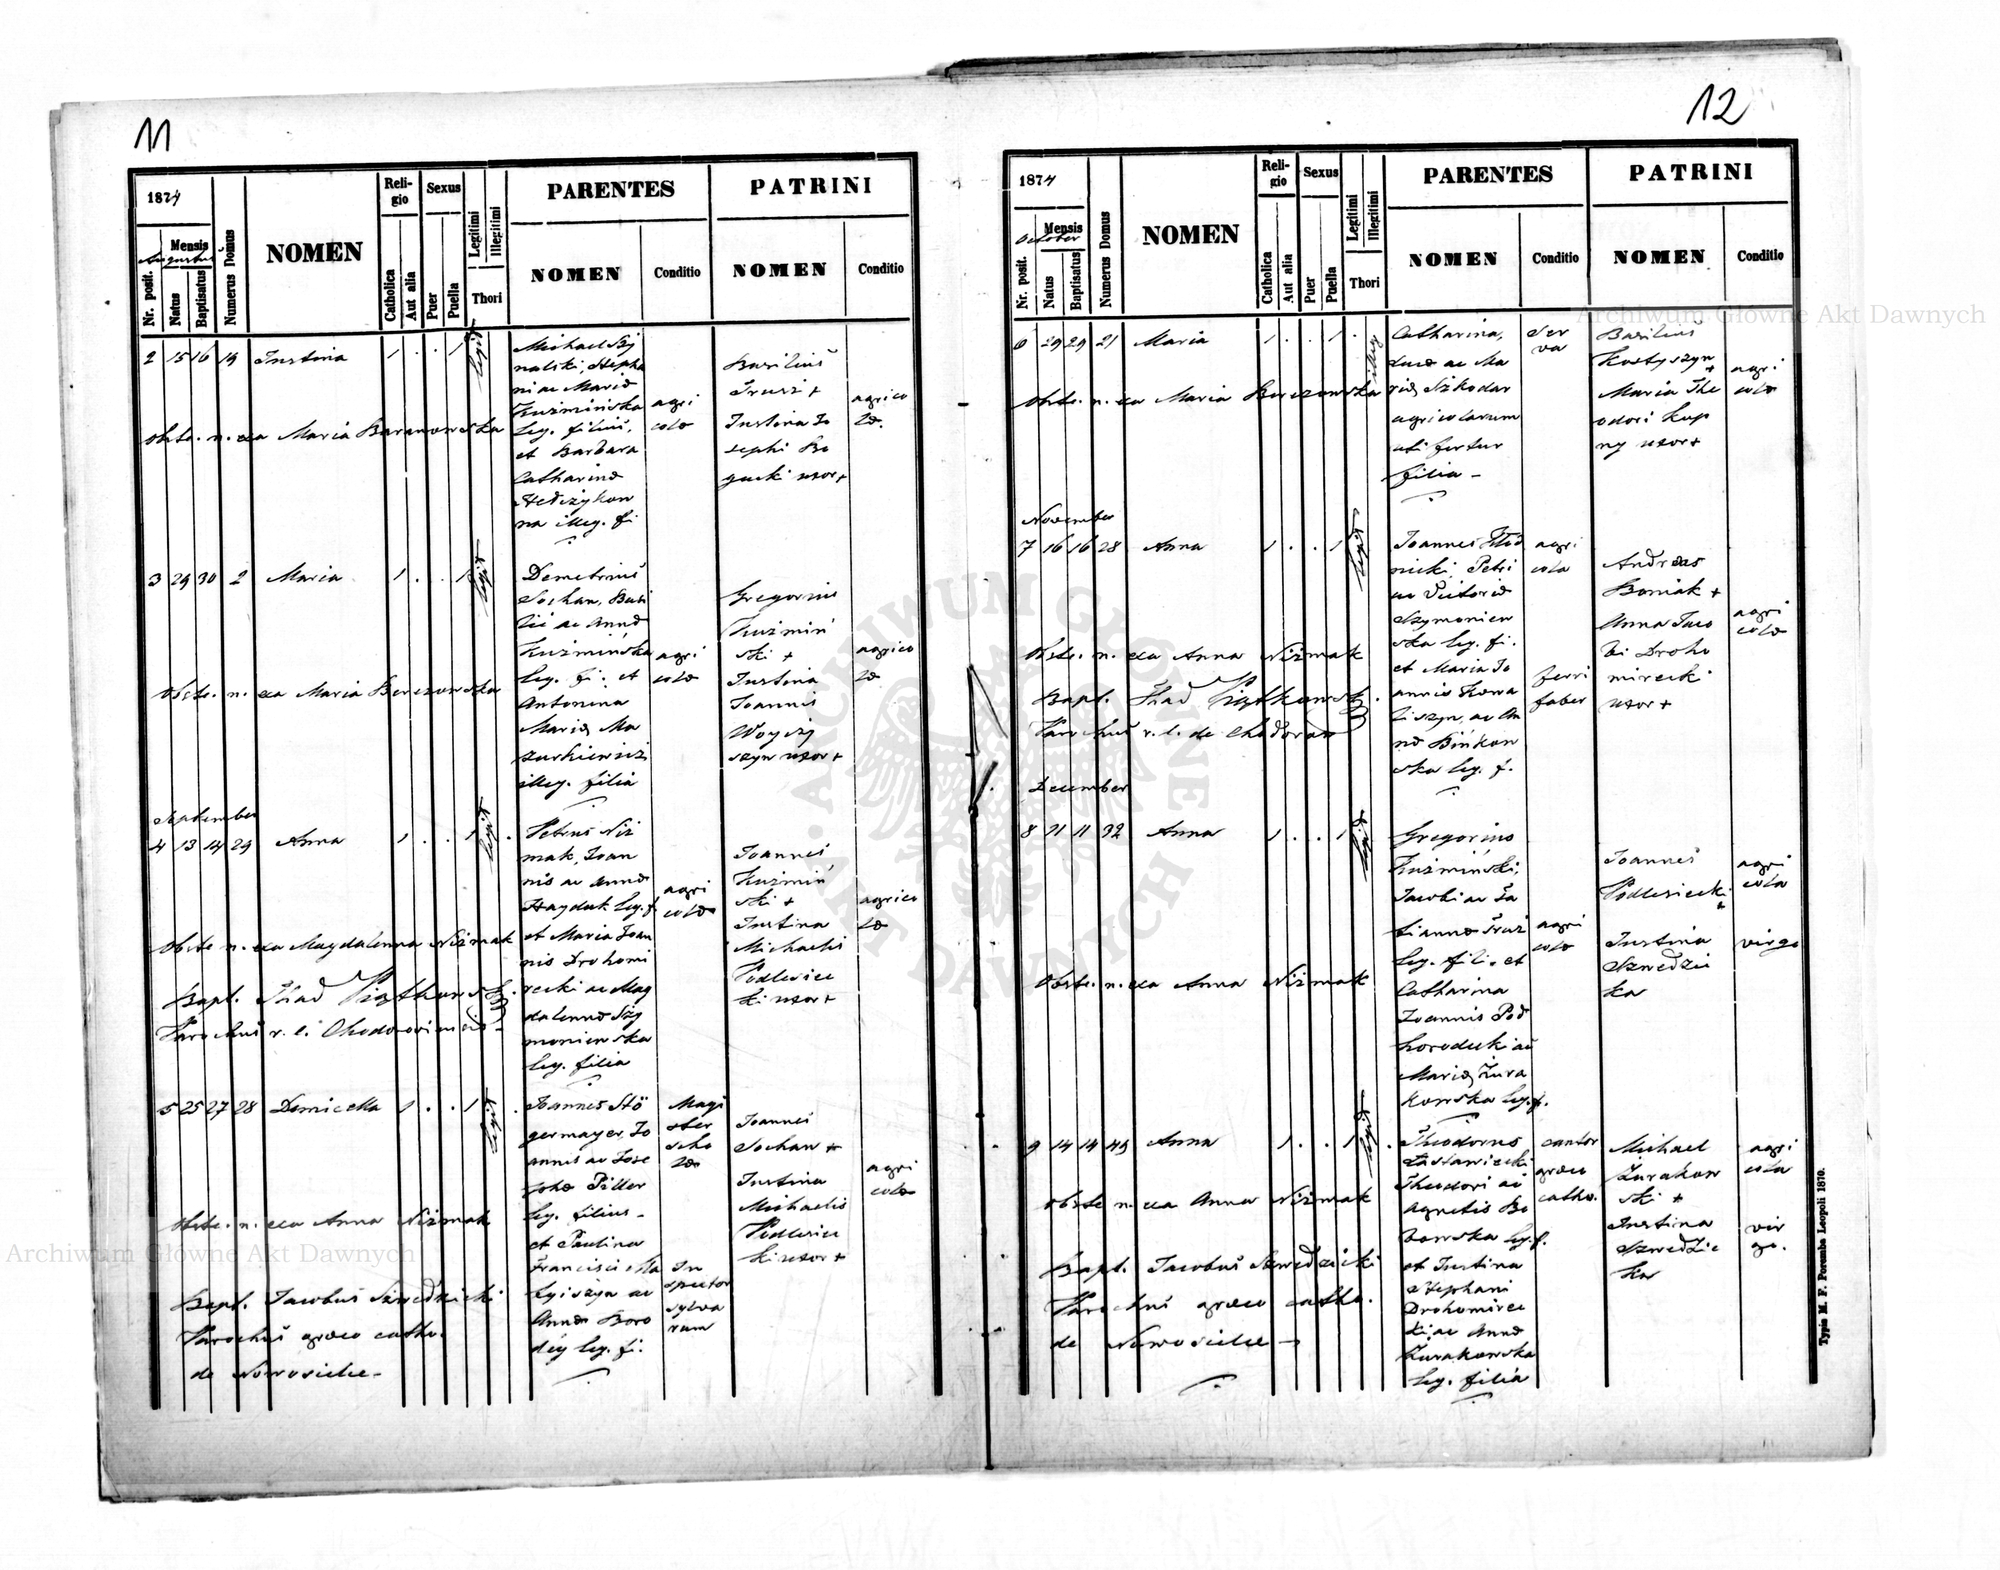 11
1874
Mensis
Augustus
Nr. posit.
Natus
Baptisatus
Numerus Domus
NOMEN
Religio
Catholica
Aut alia
Sexus
Puer
Puella
Legitimi
Illegitimi
Thori
PARENTES
NOMEN
Conditio
PATRINI
NOMEN
Conditio
2 15 16 19 Justina 1 . . 1 legit
Michael
nalski, Stepha
ni ac Maria
Kuźmińska
leg. filius,
et Barbara
Catharina
na illeg. fi
agri
cola
Basilius
+
Justina Jo
sephi Bo
gucki uxor +
agrico
la.
obste. n. exa Maria Baranowska
3 29 30 2 Maria 1 . . 1 legit
Demetrius
Sochan, Basi
lii ac Anna
Kuźmińska
leg. fi. et
Antonina
Maria Ma
zurkiewicz
illeg. filia
agri
cola
Gregorius
Kuźmiń
ski +
Justina
Joannis
Woyczy
szyn uxor +
agrico
la
Obste. n. exa Maria Berezowska
September
4 13 14 29 Anna 1 . . 1 legit
Petrus Niż
mak, Joan
nis ac Anna
Hayduk leg. f.
et Maria Joan
nis Drohomi
recki ac Mag
dalenna Szy
monienska
leg. filia
agri
cola
Joannes
Kuźmiń
ski +
Justina
Michaelis
Podlesiec
ki uxor +
agrico
la
Obste n. exa Magdalenna Niżmak
Bapt. Thad Piątkowski
Parochus r. l. Chodoroviensis
5 25 27 28 Domicella 1 . . 1 legit
Joannes Stö
germayer, Jo
annis ac Jose
pha Piller
leg. filius
et Paulina
Francisci Ma
ac
Anna Boro
dey leg. fi.
Magi
ster
scho
la
In
spector
sylva
rum
Joannes
Sochan +
Justina
Michaelis
Podlesiec
ki uxor +
agri
cola
obste. n. exa Anna Niżmak
Bapt. Jacobus Szwedzicki
Parochus graeco catho.
de Nowosielce
12
1874
Mensis
October
Nr. posit.
Natus
Baptisatus
Numerus Domus
NOMEN
Religio
Catholica
Aut alia
Sexus
Puer
Puella
Legitimi
Illegitimi
Thori
PARENTES
NOMEN
Conditio
PATRINI
NOMEN
Conditio
6 29 29 21 Maria 1 . . 1 . illeg
Catharina,
ac Ma
ria Szkodar
agricolarum
uti fertur
filia
Ser
va
Basilius
Kostyszyn
+
Maria The
odori Kup
ny uxor +
agri
cola
Obste. n. exa Maria Berezowska
November
7 16 16 28 Anna 1 . . 1 legit
Joannes
nicki, Petri
ac Victoria
Szymonien
ska leg. fi.
et Maria Jo
annis Kowa
liszyn, ac An
na Bińkow
ska leg. f.
agri
cola
ferri
faber
Andreas
Boniak +
Anna Jaco
bi Droho
mirecki
uxor +
agri
cola
Obste. n. exa Anna Niżmak
Bapt. Thad Piątkowski
Parochus r. l. de Chodorow
December
8 11 11 32 Anna 1 . . 1 legit
Gregorius
Kuźmiński,
Jacobi ac Ta
tianna
leg. fili. et
Catharina
Joannis Pod
horodecki ac
Maria Żura
kowska leg. f.
agri
cola
Joannes
Podlesiecki
+
Justina
Szwedzic
ka
agri
cola
virgo
Obste. n. exa Anna Niżmak
9 14 14 43 Anna 1 . . 1 legit
Theodorus
Zastawiecki
Theodori ac
Agnetis Bo
bowska leg. f.
et Justina
Stephani
Drohomirec
ki ac Anna
Żurakowska
leg. filia
cantor
graeco
catho.
Michael
Żurakow
ski +
Justina
Szwedzic
ka
agri
cola
vir
go.
Obste n. exa Anna Niżmak
Bapt. Jacobus Szwedzicki
Parochus graeco catho.
de Nowosielce
Typis M. F. Poremba Leopoli 1870.
Archiwum Główne Akt Dawnych
Archiwum Główne Akt Dawnych
ARCHIWUM GŁÓWNE AKT DAWNYCH